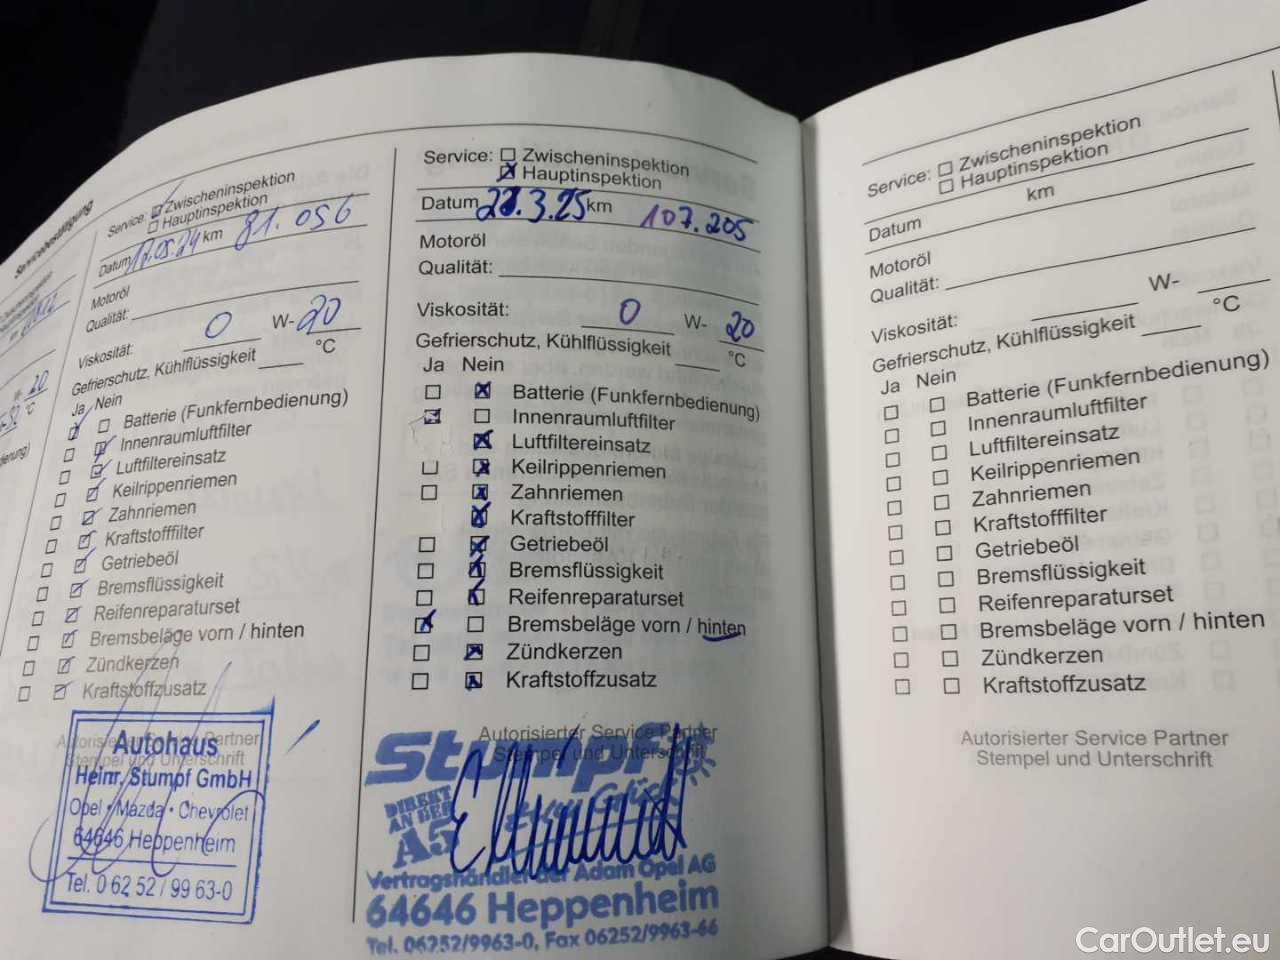 Servicebestätigung
W- 20
°C
Service: Zwischeninspektion
Hauptinspektion
Datum 17.05.24 km 81.056
Motoröl
Qualität:
Viskosität: 0 W- 20
Gefrierschutz, Kühlflüssigkeit °C
Ja Nein
Batterie (Funkfernbedienung)
Innenraumluftfilter
Luftfiltereinsatz
Keilrippenriemen
Zahnriemen
Kraftstofffilter
Getriebeöl
Bremsflüssigkeit
Reifenreparaturset
Bremsbeläge vorn / hinten
Zündkerzen
Kraftstoffzusatz
Autorisierter Service Partner
Stempel und Unterschrift
Autohaus
Heinr. Stumpf GmbH
Opel • Mazda • Chevrolet
64646 Heppenheim
Tel. 0 62 52 / 99 63-0
Service: Zwischeninspektion
Hauptinspektion
Datum 27.3.25 km 107.205
Motoröl
Qualität:
Viskosität: 0 W- 20
Gefrierschutz, Kühlflüssigkeit °C
Ja Nein
Batterie (Funkfernbedienung)
Innenraumluftfilter
Luftfiltereinsatz
Keilrippenriemen
Zahnriemen
Kraftstofffilter
Getriebeöl
Bremsflüssigkeit
Reifenreparaturset
Bremsbeläge vorn / hinten
Zündkerzen
Kraftstoffzusatz
Autorisierter Service Partner
Stempel und Unterschrift
Stumpf
DIREKT
AN DER
A5
Vertragshändler der Adam Opel AG
64646 Heppenheim
Tel. 06252/9963-0, Fax 06252/9963-66
Service: Zwischeninspektion
Hauptinspektion
Datum km
Motoröl
Qualität:
Viskosität: W-
Gefrierschutz, Kühlflüssigkeit °C
Ja Nein
Batterie (Funkfernbedienung)
Innenraumluftfilter
Luftfiltereinsatz
Keilrippenriemen
Zahnriemen
Kraftstofffilter
Getriebeöl
Bremsflüssigkeit
Reifenreparaturset
Bremsbeläge vorn / hinten
Zündkerzen
Kraftstoffzusatz
Autorisierter Service Partner
Stempel und Unterschrift
CarOutlet.eu